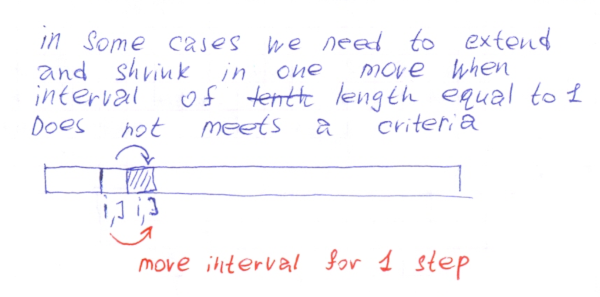 in some cases we need to extend
and shrink in one move when
interval of tenth length equal to 1
Does not meets a criteria
i,j i,j
move interval for 1 step